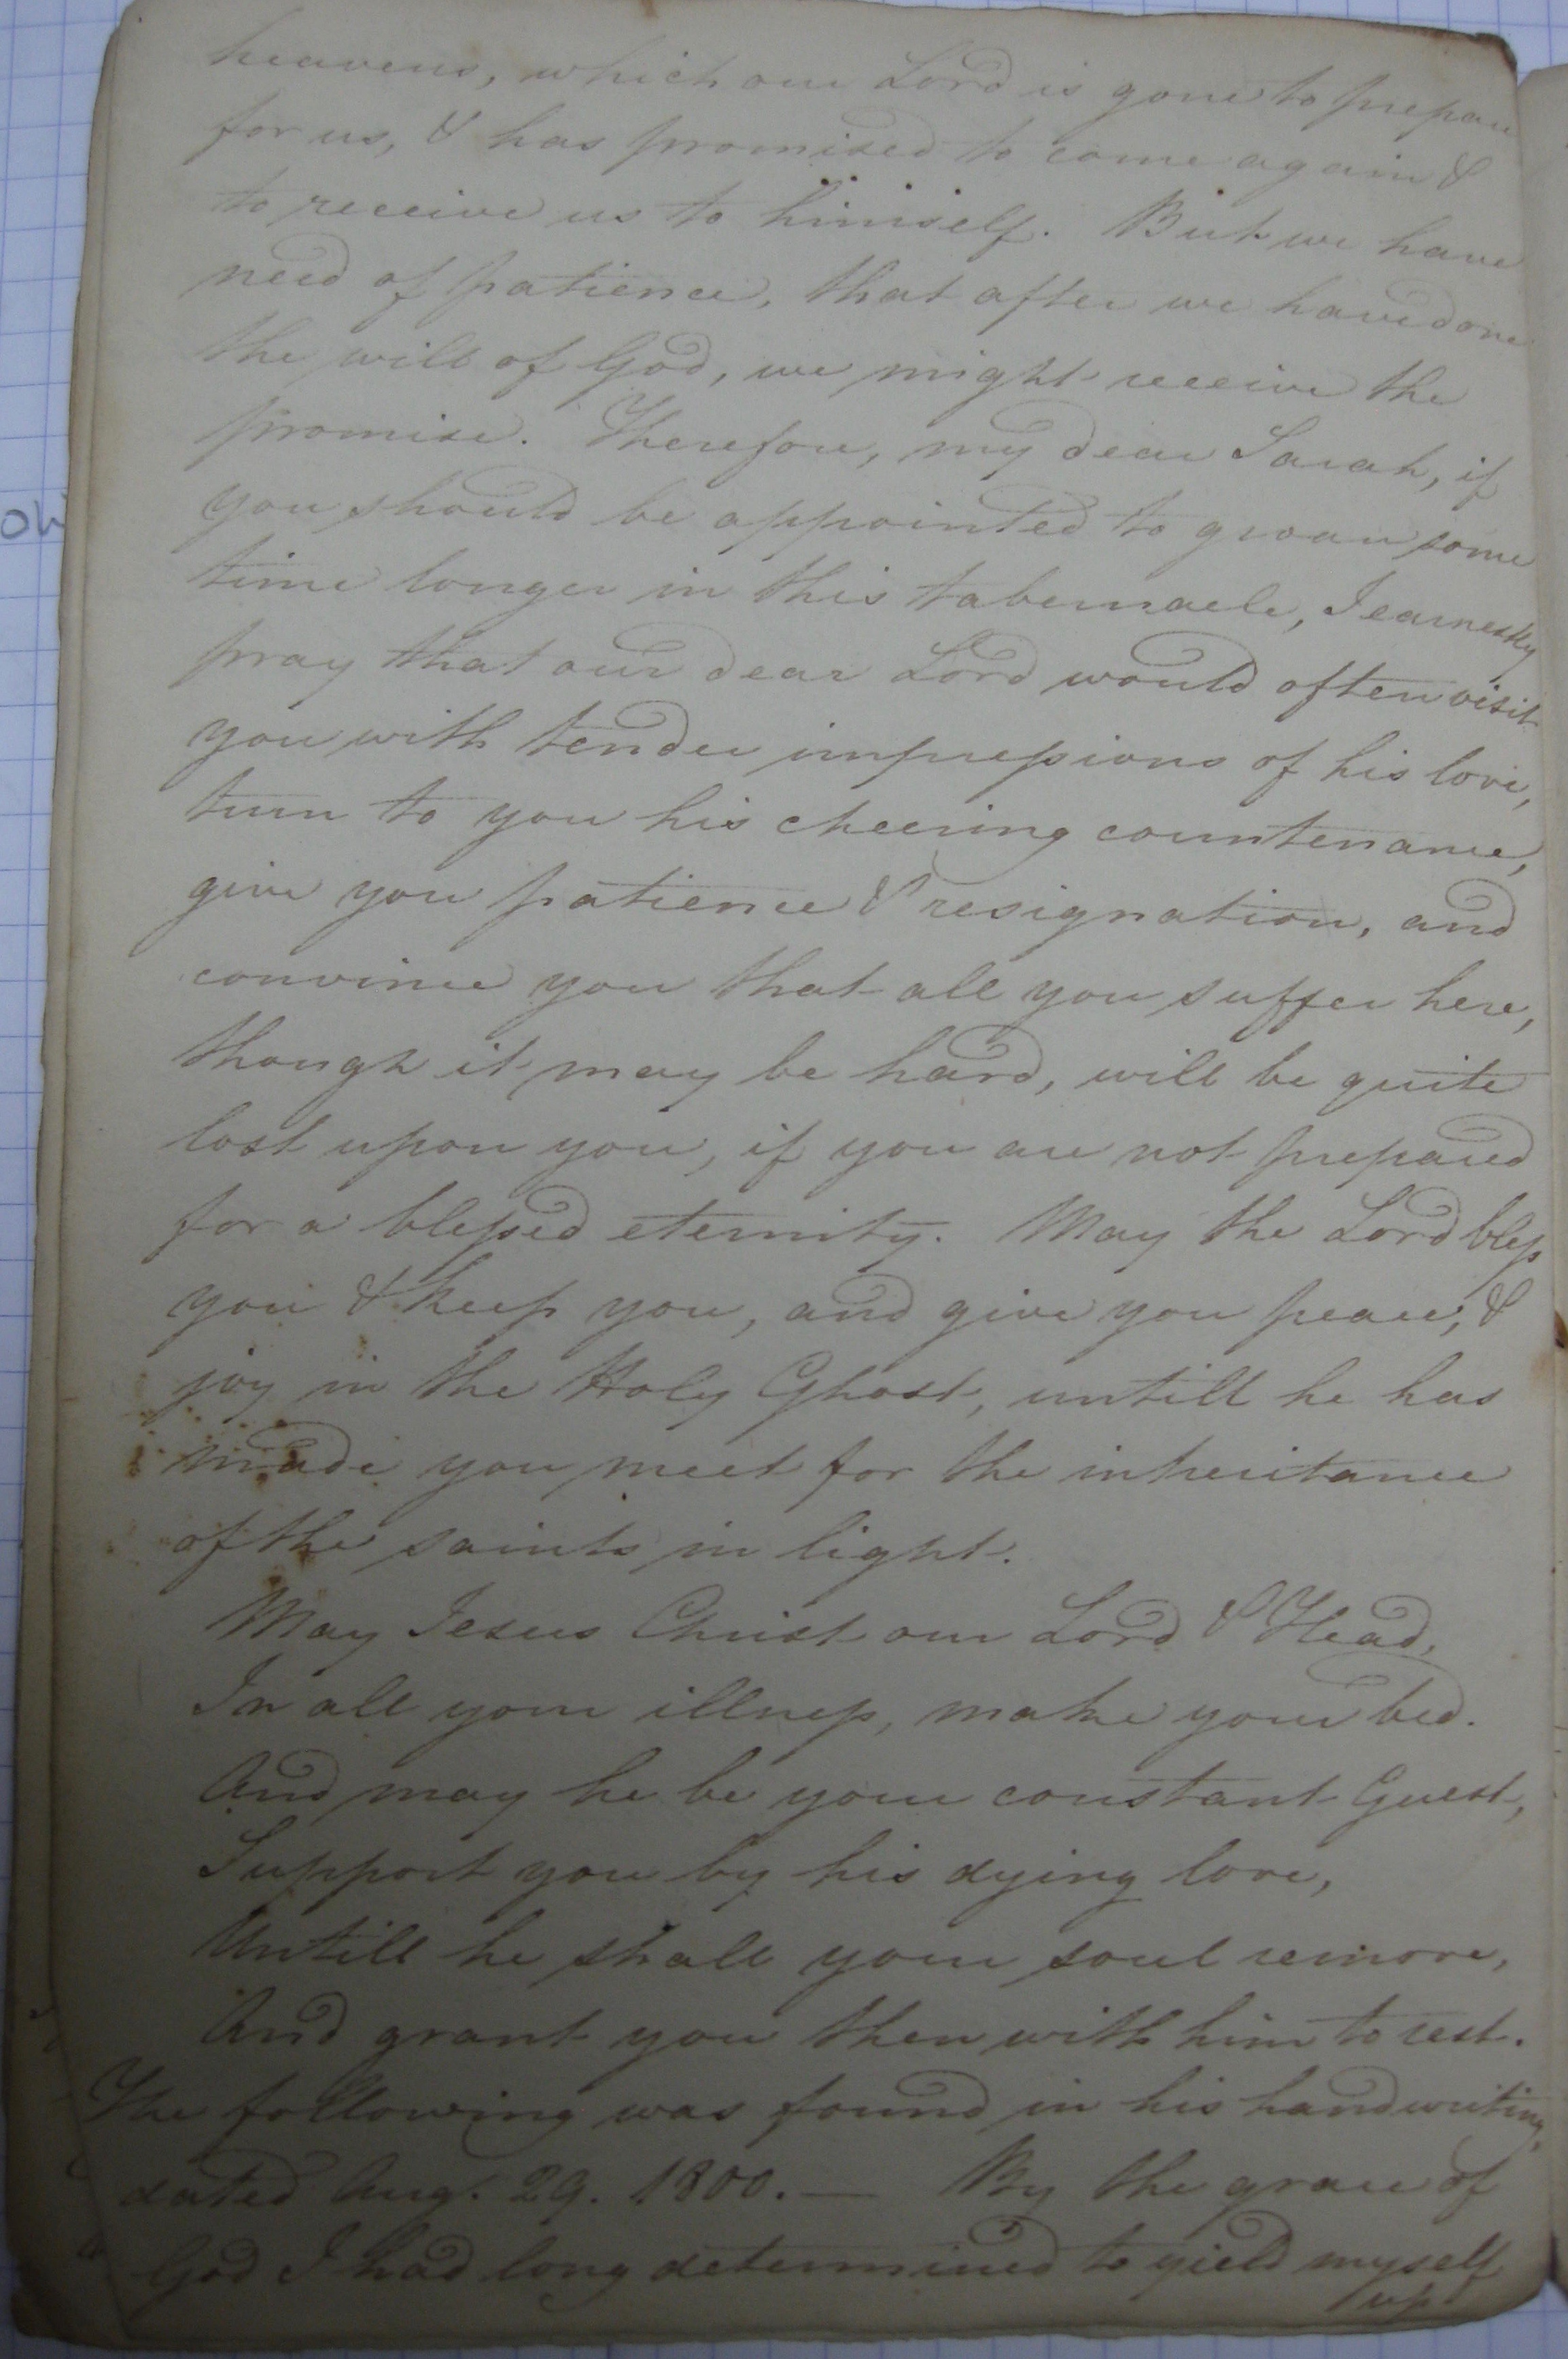 heavens, which our Lord is gone to prepare
for us, & has promised to come again &
to receive us to himself. But we have
need of patience, that after we have done
the will of God, we might receive the
promise. Therefore, my dear Sarah, if
you should be appointed to groan some
time longer in this tabernacle, I earnestly
pray that our dear Lord would often visit
you with tender impressions of his love,
turn to you his cheering countenance,
give you patience & resignation, and
convince you that all you suffer here,
though it may be hard, will be quite
lost upon you, if you are not prepared
for a blessed eternity. May the Lord bless
you & keep you, and give you peace, &
joy in the Holy Ghost, untill he has
made you meet for the inheritance
of the saints in light.
May Jesus Christ our Lord & Head,
In all your illness, make your bed.
And may he be your constant Guest,
Support you by his dying love,
Untill he shall your soul remove,
And grant you then with him to rest.
The following was found in his handwriting,
dated Aug. 29. 1800. — By the grace of
God I had long determined to yield myself
up